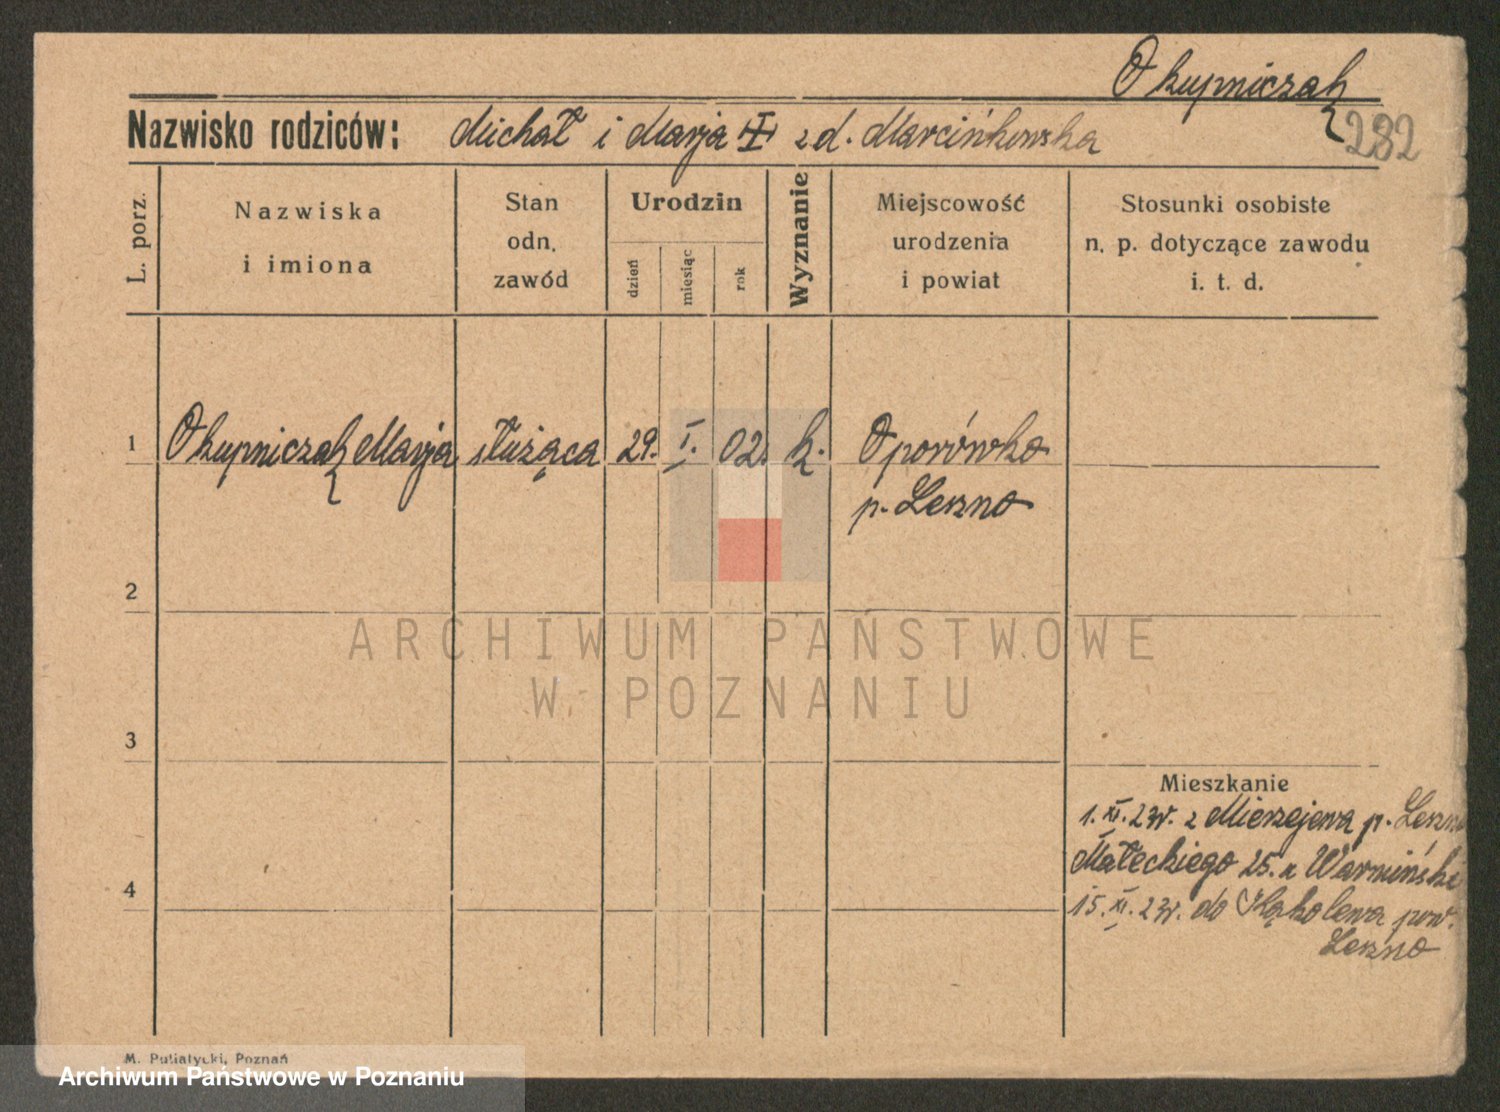 Okupniczak
Nazwisko rodziców: Michał i Marja z d. Marcińkowska
232
L. porz.
Nazwiska i imiona
Stan odn. zawód
Urodzin
dzień
miesiąc
rok
Wyznanie
Miejscowość urodzenia i powiat
Stosunki osobiste n. p. dotyczące zawodu i. t. d.
1 Okupniczak Marja służąca 29. I. 02. k. Oporówko
p. Leszno
2
ARCHIWUM PAŃSTWOWE
W POZNANIU
3
Mieszkanie
1. XI. 23r. z Mierzejewa p. Leszno
Małeckiego 25. u Warmiński
4
15. XI. 23r. do Kąkolewa pow.
Leszno
M. Putiatycki, Poznań
Archiwum Państwowe w Poznaniu